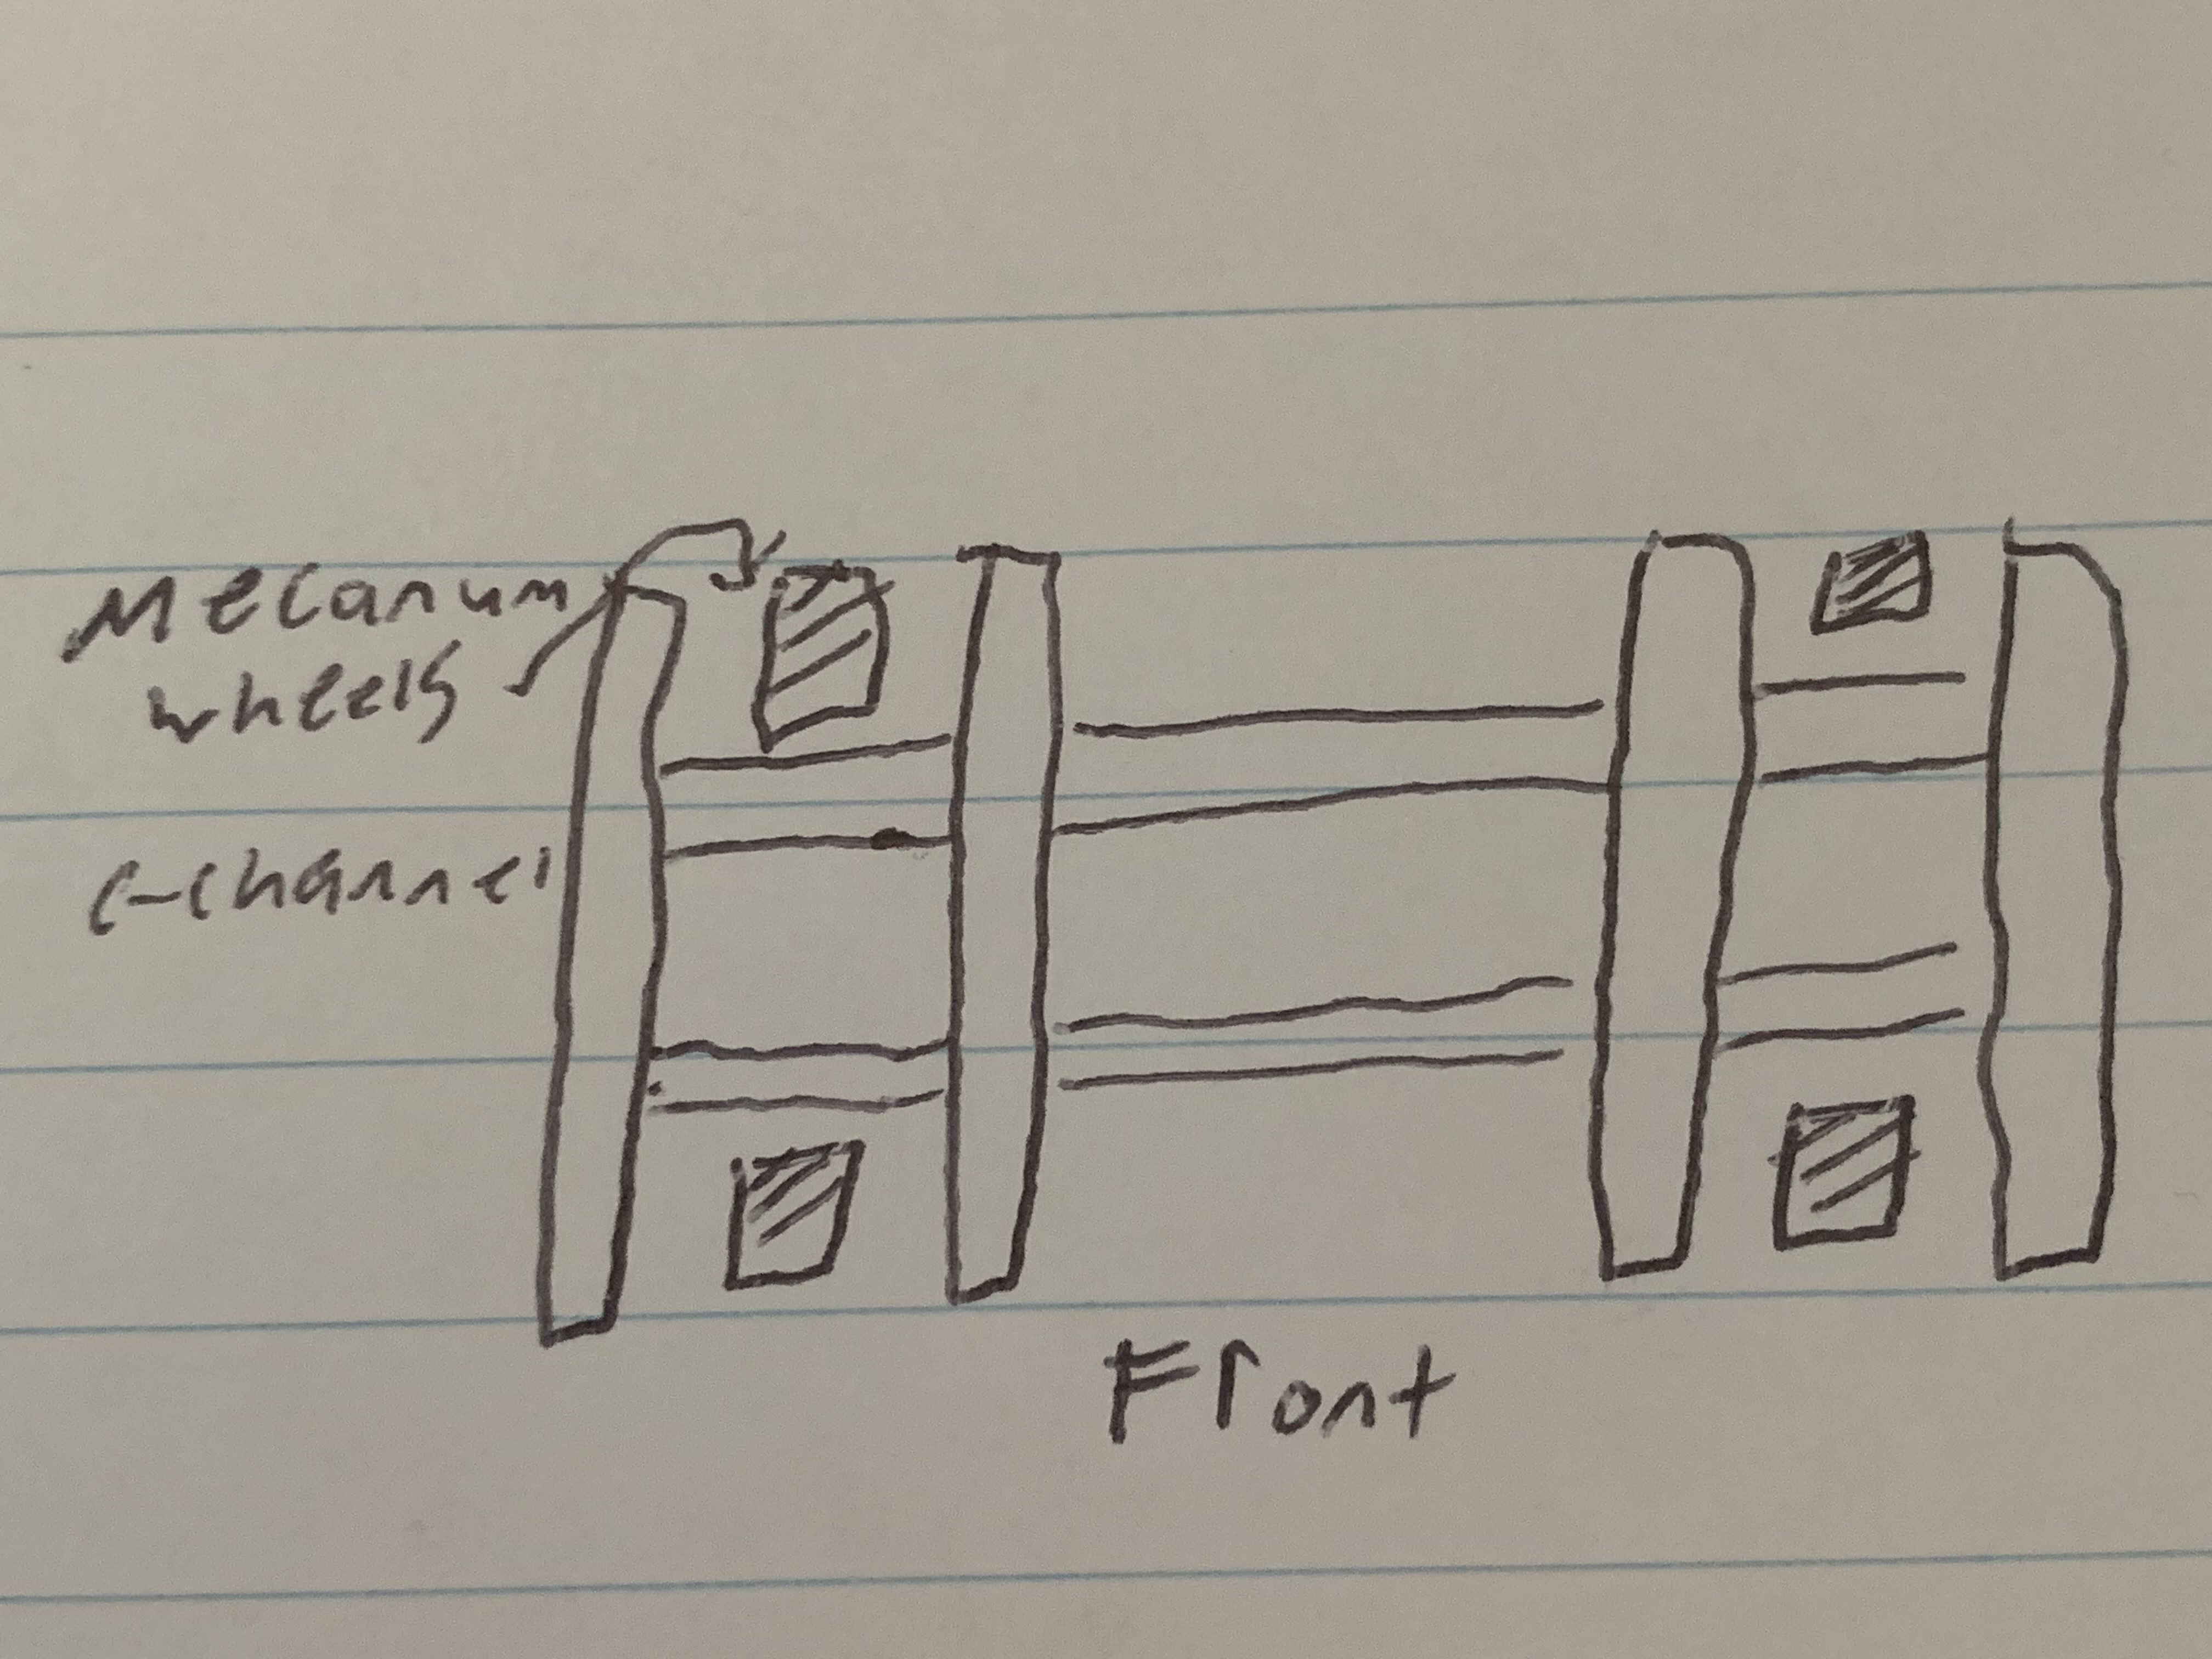 Mecanum
wheels
c-channel
Front